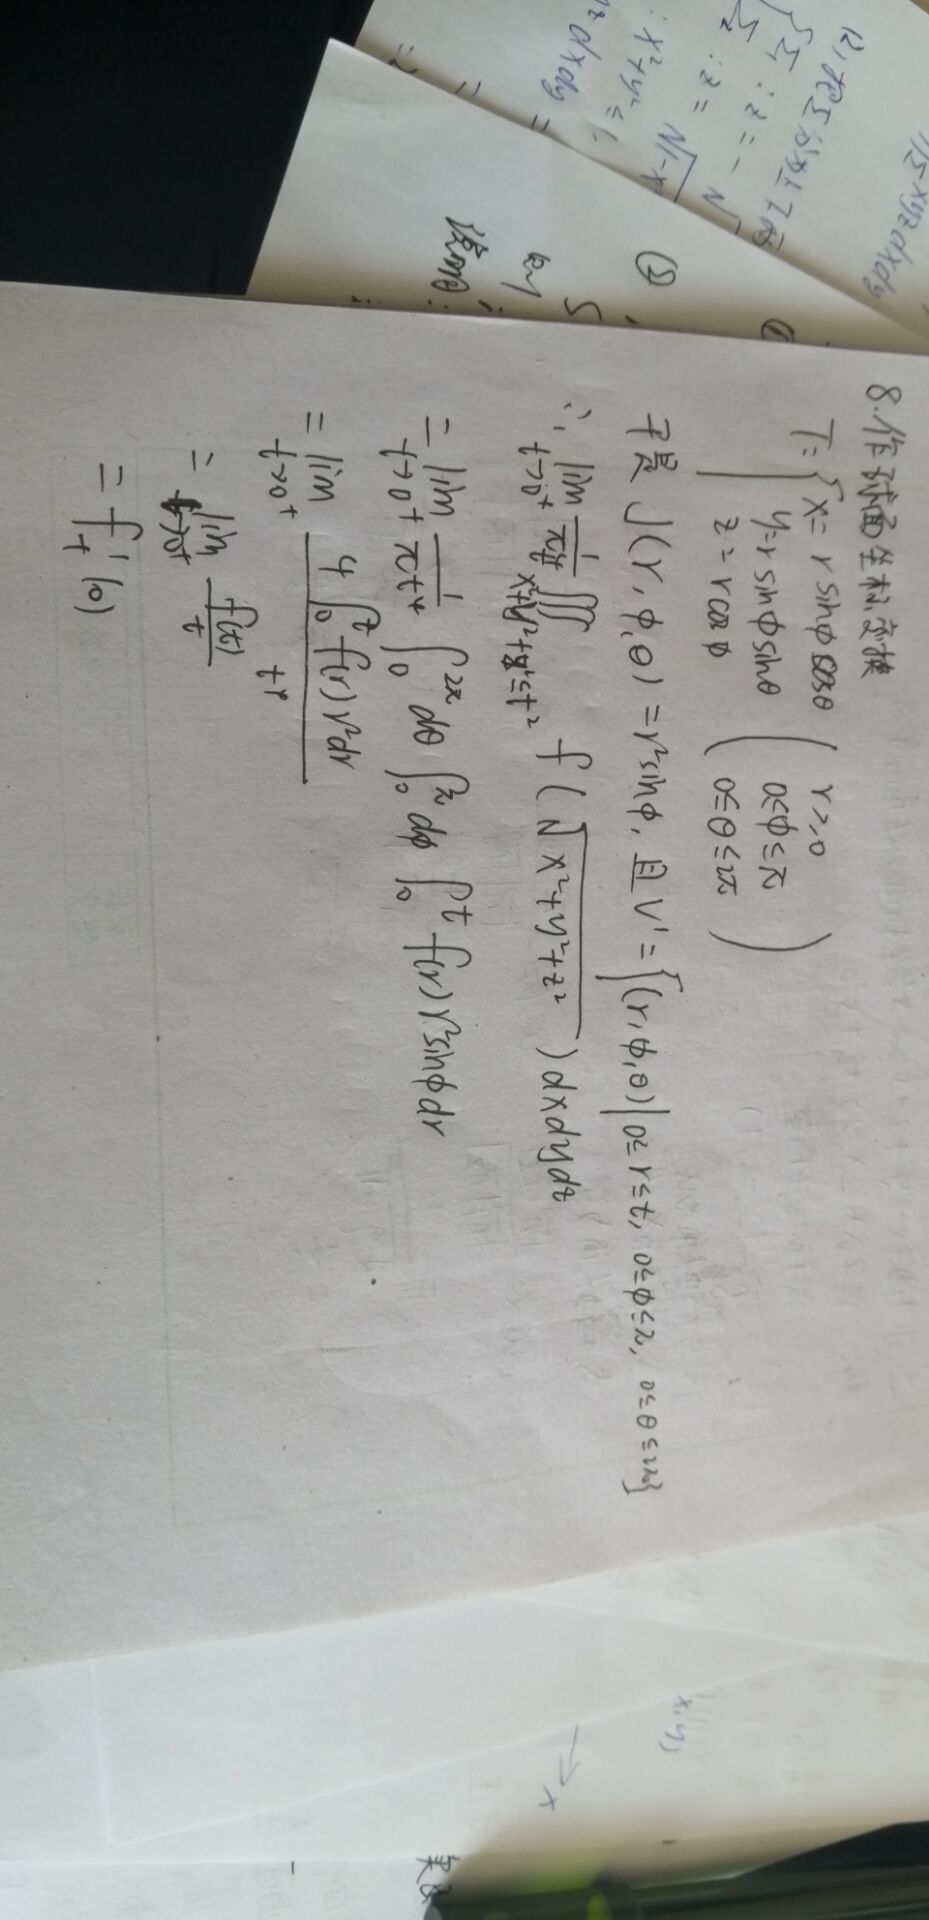 8.作球面坐标变换
T={x=r sinφcosθ
y=r sinφsinθ
z=r cosφ
(r≥0
0≤φ≤π
0≤θ≤2π)
于是 J(r,φ,θ)=r²sinφ,且V'={(r,φ,θ)|0≤r≤t,0≤φ≤π,0≤θ≤2π}
∴ lim t→0+ 1/πt⁴ ∭ x²+y²+z²≤t² f(√x²+y²+z²)dxdydz
=lim t→0+ 1/πt⁴ ∫₀^2π dθ ∫₀^π dφ ∫₀^t f(r)r²sinφdr
=lim t→0+ 4∫₀^t f(r)r²dr / t⁴
=lim t→0+ f(t)/t
=f'₊(0)
②
使得:
x²+y²≤1.
z dxdy =
:z=-√
:z=√1-x
-xyzdxdy
x,y,
x